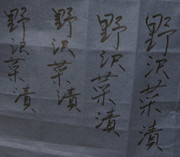 野沢菜漬
野沢菜漬
野沢菜漬
野沢菜漬